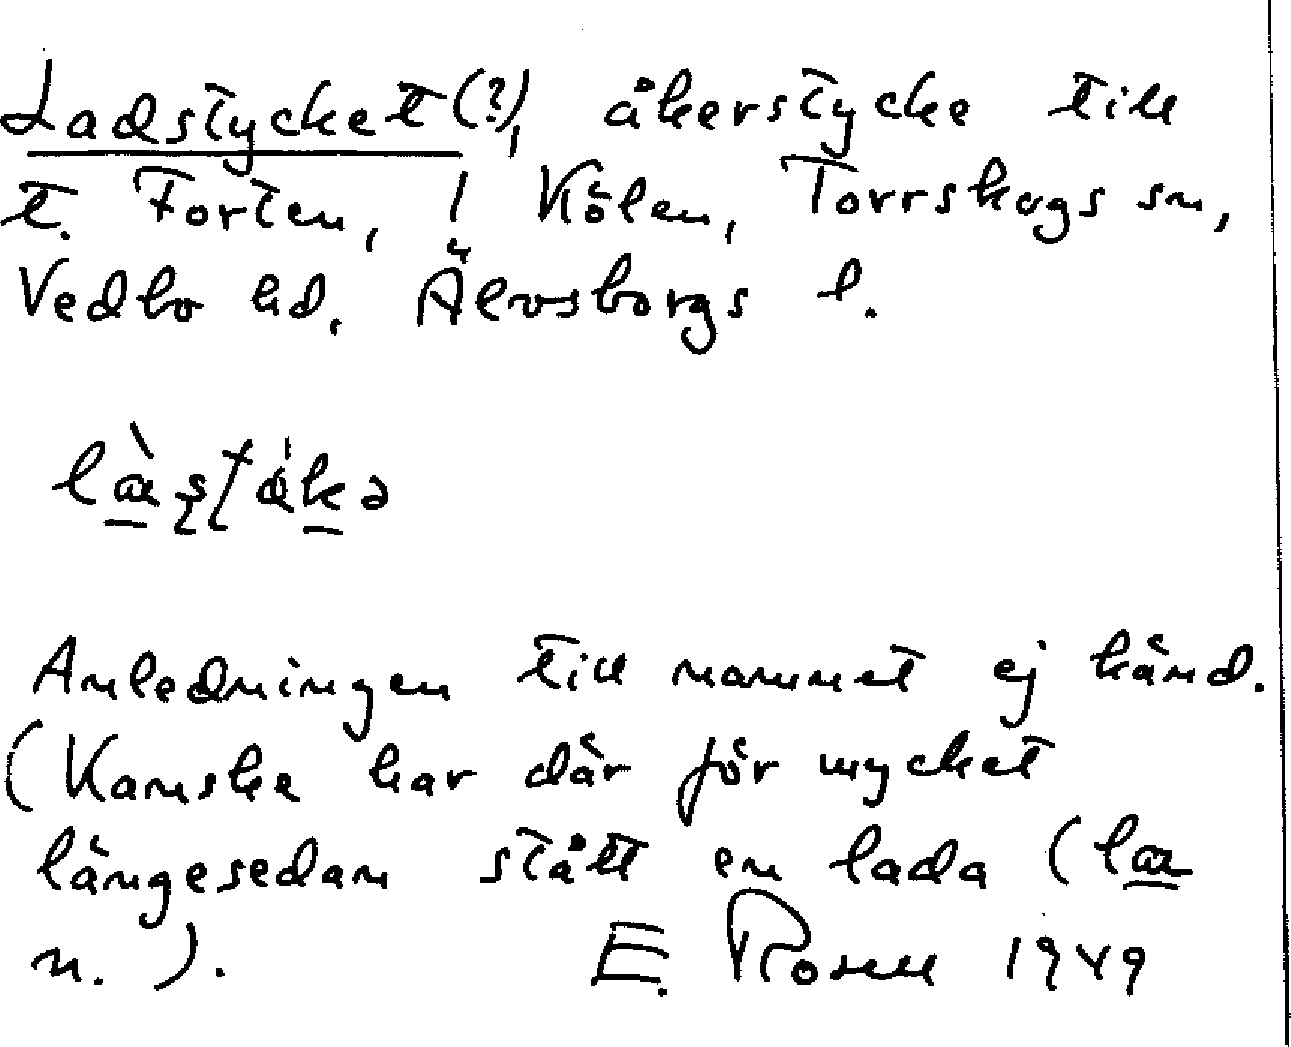 Ladstycket(?), åkerstycke till
t. Forten, i Kölen, Torrskogs sn,
Vedbo hd, Älvsborgs l.
Anledningen till namnet ej känd.
(Kanske har där för mycket
längesedan stått en lada (la
n. ). E. Rosell 1949